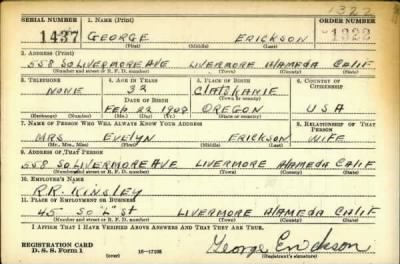 1322
SERIAL NUMBER 1. NAME (Print) ORDER NUMBER
1437 GEORGE ERICKSON 1322
(First) (Middle) (Last)
2. ADDRESS (Print)
558 SO LIVERMORE AVE LIVERMORE ALAMEDA CALIF
(Number and street or R. F. D. number) (Town) (County) (State)
3. TELEPHONE 4. AGE IN YEARS 5. PLACE OF BIRTH 6. COUNTRY OF CITIZENSHIP
NONE 32 CLATSKANIE
DATE OF BIRTH (Town or county)
FEB 22 1908 OREGON USA
(Exchange) (Number) (Mo.) (Day) (Yr.) (State or country)
7. NAME OF PERSON WHO WILL ALWAYS KNOW YOUR ADDRESS 8. RELATIONSHIP OF THAT PERSON
MRS EVELYN ERICKSON WIFE
(Mr., Mrs., Miss) (First) (Middle) (Last)
9. ADDRESS OF THAT PERSON
558 SO LIVERMORE AVE LIVERMORE ALAMEDA CALIF
(Number and street or R. F. D. number) (Town) (County) (State)
10. EMPLOYER'S NAME
R.R. KINSLEY
11. PLACE OF EMPLOYMENT OR BUSINESS
45 SO "L" ST LIVERMORE ALAMEDA CALIF
(Number and street or R. F. D. number) (Town) (County) (State)
I AFFIRM THAT I HAVE VERIFIED ABOVE ANSWERS AND THAT THEY ARE TRUE.
REGISTRATION CARD
D. S. S. Form 1 16—17105 George Erickson
(Registrant's signature)